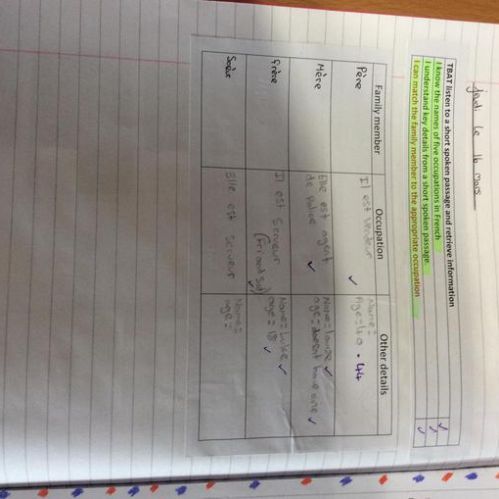 jeudi le 16 mars
TBAT listen to a short spoken passage and retrieve information
I know the names of five occupations in French
I understand key details from a short spoken passage.
I can match the family member to the appropriate occupation
Family member Occupation Other details
Père Il est Name=
Age=40 . 44
Mère Elle est agent Name=Louise
de police age=doesnt have one
Frère Il est Serveur Name=Luke
age=18
Soeur Elle est serveur Name=
age=